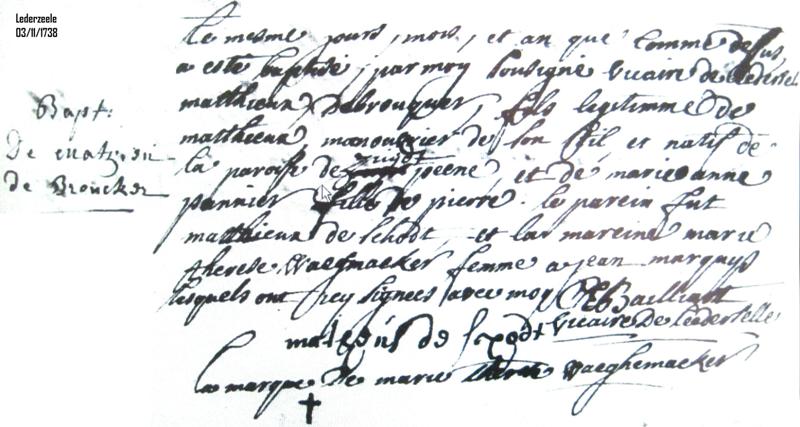 Lederzeele
03/11/1738
Bapt:
De matthieu
de Broucker
Le mesme jours, mois, et an que comme desus,
a esté baptisé, par moy sousigné vicaire de Lederzel
matthieux Debrouquer, fils legitimme de
matthieux manouvrier de son stil, et natif de
la paroise de zuydt peene, et de marie anne
pannier fille de pierre: le parein fut
matthieux de schodt, et la mareine marie
therese Vaeghmacker femme a jean marquys
lesquels ont icy signees avec moy Bailliart
vicaire De Lederselle
mateús de sxodt
La marque De marie therese vaeghemacker